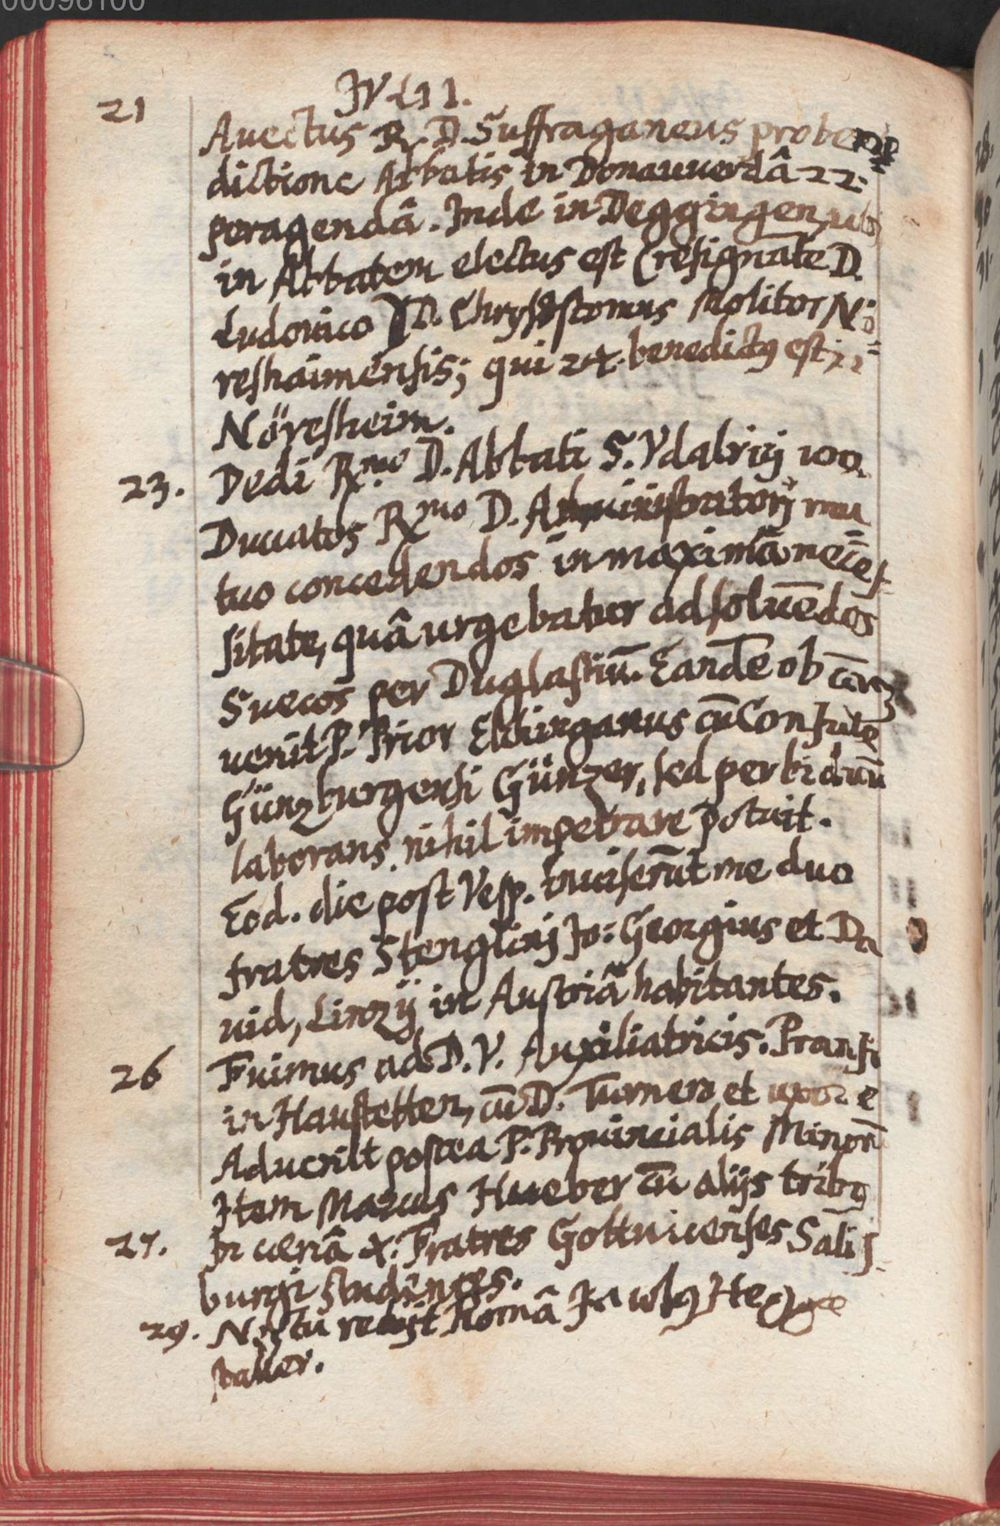 00096100
IVLII.
21 Auectus R. D. Suffraganeus pro bene=
dictione Abbatis in Donauuerdâ 22.
peragendâ. Inde in Deggingen, ubi
in Abbatem electus est (resignāte D.
Ludouico) D. Chrysostomus Molitor Nö=
reshaimensis; qui 24. benedictq est in
Nöresheim.
23. Dedi Rmo D. Abbati S. Vdalrici 100.
Ducatos Rmo D. Administratorj mu=
tuo concedendos in maximâ neces=
sitate, quâ urgebatur ad soluēdos
Suecos per Duglassiū. Eandē ob cām
uenit P. Prior Elchinganus cū Consule
Günzburgensi Günzer, sed per biduū
laborans nihil impetrare potuit.
Eod. die post Vesp. inuiserūt me duo
fratres Stenglinj Jo: Georgius et Da
uid, Linzij in Austriâ habitantes.
26 Fuimus ad D. V. Auxiliatricis. Pransi
in Haustetten, cū D. Turnero et uxore
Aduenit postea P. Prouincialis Minorū
Item Marcus Hueber cū alijs tribq
27. In cenâ x. Fratres Gottwicenses Salis=
burgi studentes.
29. Noctu redijt Româ Jacobq
staller.